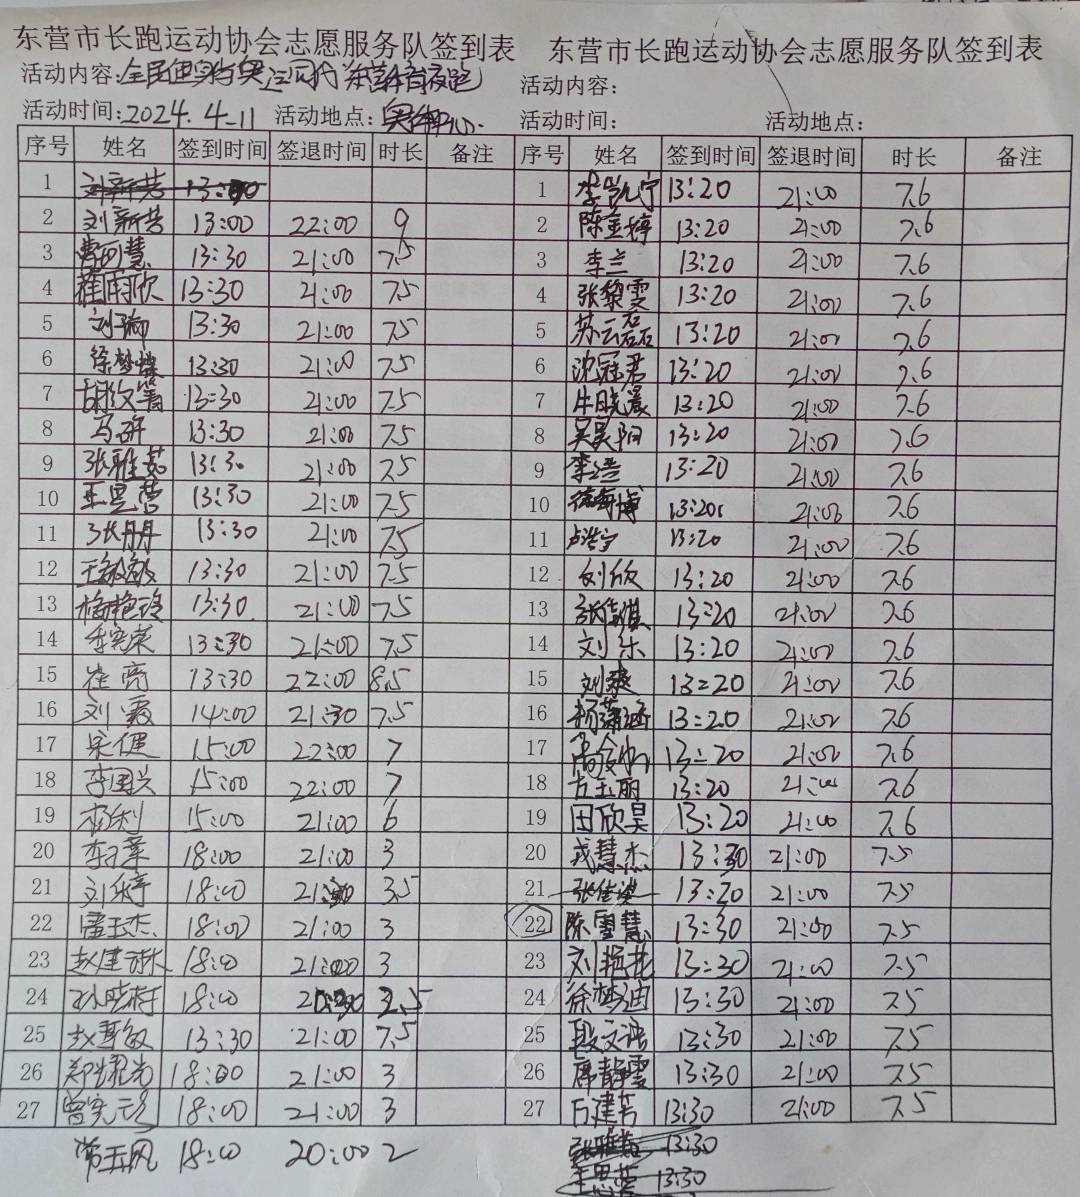 东营市长跑运动协会志愿服务队签到表
活动内容:全民健身与奥运同代 东营体育夜跑
活动时间:2024.4-11 活动地点:奥体中心.
序号 姓名 签到时间 签退时间 时长 备注
1 刘新芸 13:00
2 刘新芸 13:00 22:00 9
3 13:30 21:00 7.5
4 崔雨欣 13:30 21:00 7.5
5 13:30 21:00 7.5
6 徐梦蝶 13:30 21:00 7.5
7 胡文箐 13:30 21:00 7.5
8 马研 13:30 21:00 7.5
9 张雅茹 13:30 21:00 7.5
10 王思营 13:30 21:00 7.5
11 张丹丹 13:30 21:00 7.5
12 王敏敏 13:30 21:00 7.5
13 杨艳玲 13:30 21:00 7.5
14 李宪荣 13:30 21:00 7.5
15 崔亮 13:30 22:00 8.5
16 刘霞 14:00 21:30 7.5
17 宋健 15:00 22:00 7
18 李国兴 15:00 22:00 7
19 杨利 15:00 21:00 6
20 18:00 21:00 3
21 刘婷 18:00 21:30 3.5
22 唐玉杰 18:00 21:00 3
23 赵建 18:00 21:00 3
24 孙晓梅 18:00 20:30 2.5
25 赵慧敏 13:30 21:00 7.5
26 郑耀光 18:00 21:00 3
27 曾宪 18:00 21:00 3
常玉风 18:00 20:00 2
东营市长跑运动协会志愿服务队签到表
活动内容:
活动时间: 活动地点:
序号 姓名 签到时间 签退时间 时长 备注
1 李凯宁 13:20 21:00 7.6
2 陈金婷 13:20 21:00 7.6
3 李兰 13:20 21:00 7.6
4 张黎雯 13:20 21:00 7.6
5 苏云磊 13:20 21:00 7.6
6 沈冠君 13:20 21:00 7.6
7 牛晓晨 13:20 21:00 7.6
8 吴昊阳 13:20 21:00 7.6
9 李浩 13:20 21:00 7.6
10 德海博 13:20 21:00 7.6
11 卢浩宁 13:20 21:00 7.6
12 刘欣 13:20 21:00 7.6
13 张佳琪 13:20 21:00 7.6
14 刘乐 13:20 21:00 7.6
15 刘爽 13:20 21:00 7.6
16 杨潇涵 13:20 21:00 7.6
17 13:20 21:00 7.6
18 古玉丽 13:20 21:00 7.6
19 田欣昊 13:20 21:00 7.6
20 戎慧杰 13:30 21:00 7.5
21 张佳洪 13:20 21:00 7.5
22 陈雪慧 13:30 21:00 7.5
23 刘艳花 13:30 21:00 7.5
24 徐梦迪 13:30 21:00 7.5
25 段文洁 13:30 21:00 7.5
26 席静雯 13:30 21:00 7.5
27 万建芳 13:30 21:00 7.5
张雅茹 13:30
王思营 13:30